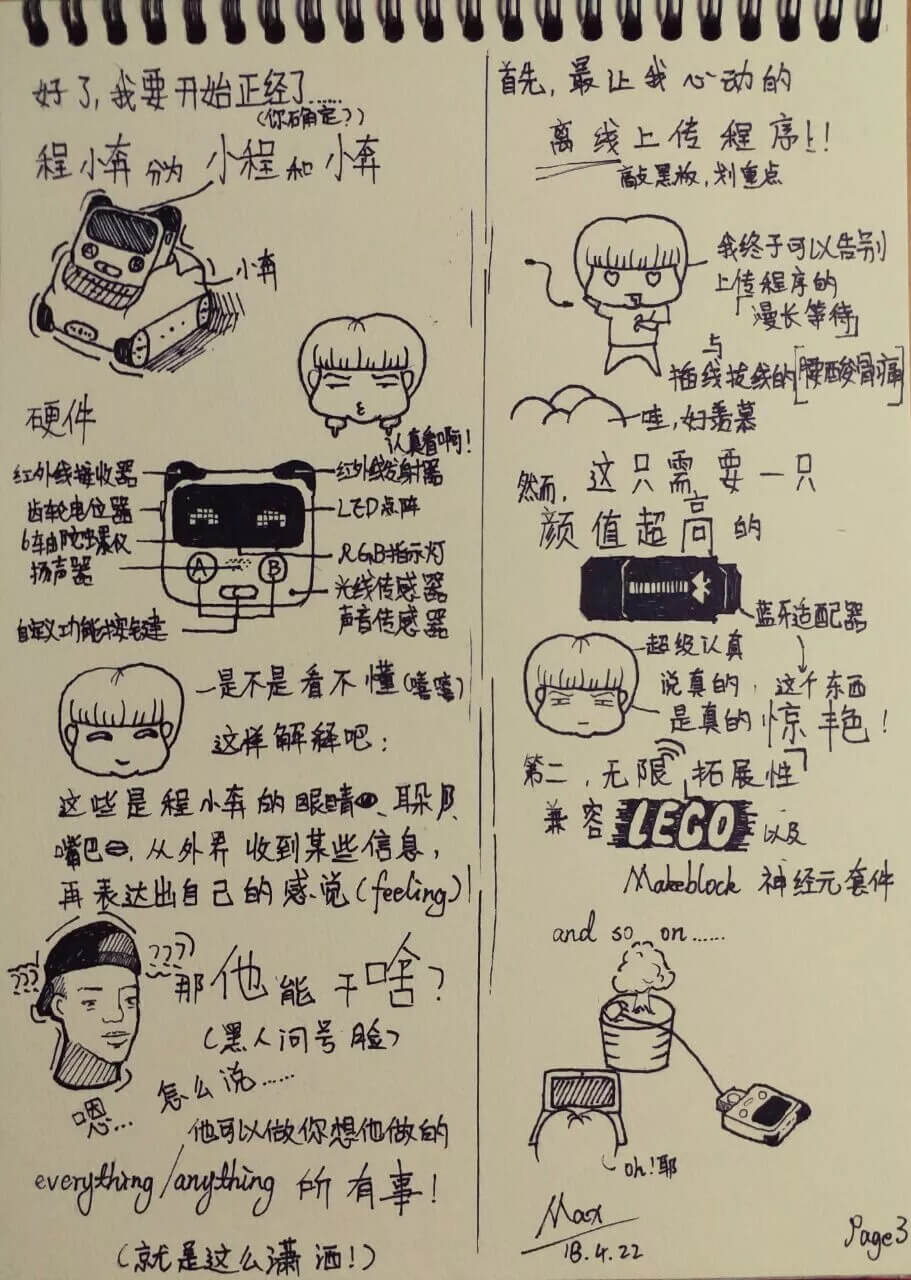 好了,我要开始正经了……
(你确定?)
程小奔 分为 小程 和 小奔
小奔
硬件
认真看啊!
红外线接收器
红外线发射器
齿轮电位器
LED点阵
6轴陀螺仪
扬声器
RGB指示灯
A
B
光线传感器
声音传感器
自定义功能按键
一是不是看不懂(嘻嘻)
这样解释吧:
这些是程小奔的眼睛、耳朵、
嘴巴,从外界收到某些信息,
再表达出自己的感觉(feeling)!
???
???
那他能干啥?
(黑人问号脸)
嗯… 怎么说……
他可以做你想他做的
everything/anything 所有事!
(就是这么潇洒!)
首先,最让我心动的
离线上传程序!!
敲黑板,划重点
我终于可以告别
上传程序的
「漫长等待」
与
插线拔线的[腰酸骨痛]
哇,好羡慕
然而,这只需要一只
颜值超高的
蓝牙适配器
超级认真
说真的,这个东西
是真的惊艳!
第二,无限拓展性
兼容 LEGO 以及
Makeblock 神经元套件
and so on……
oh!耶
Max
18.4.22
Page3